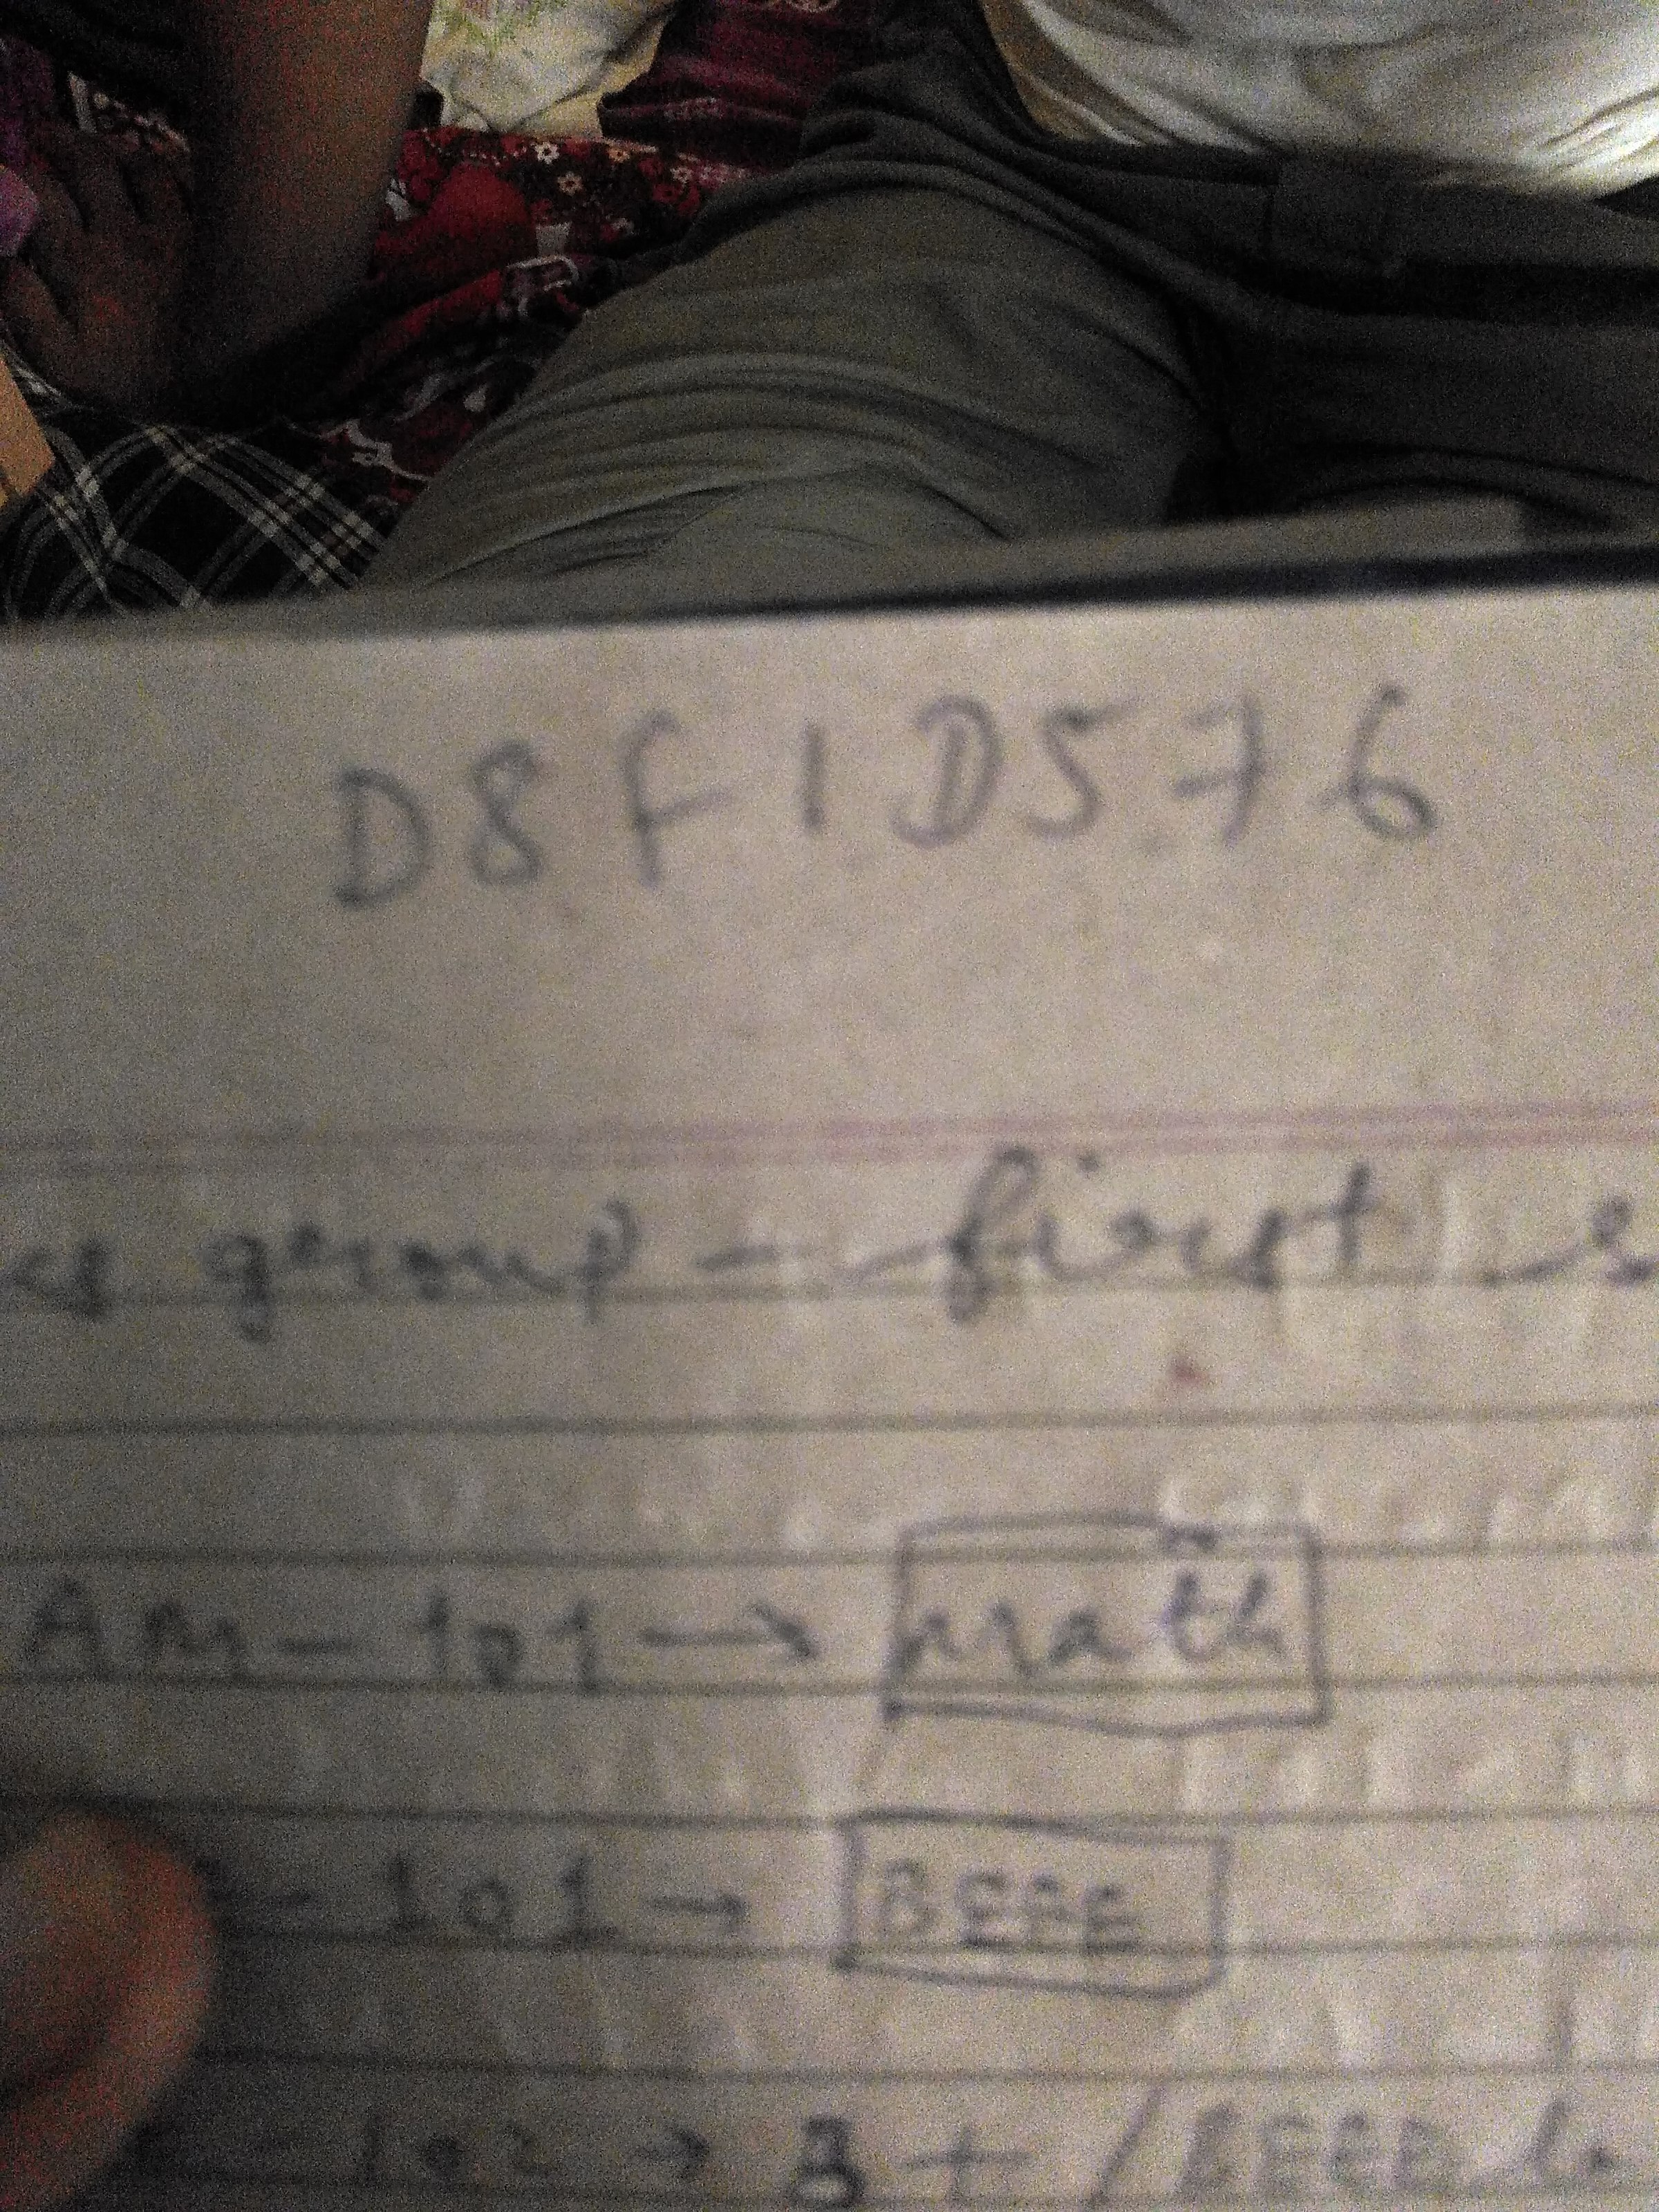 D8F1D576
group - first
AM - 101 → Math
- 101 → BEEE
- 102 → B + /